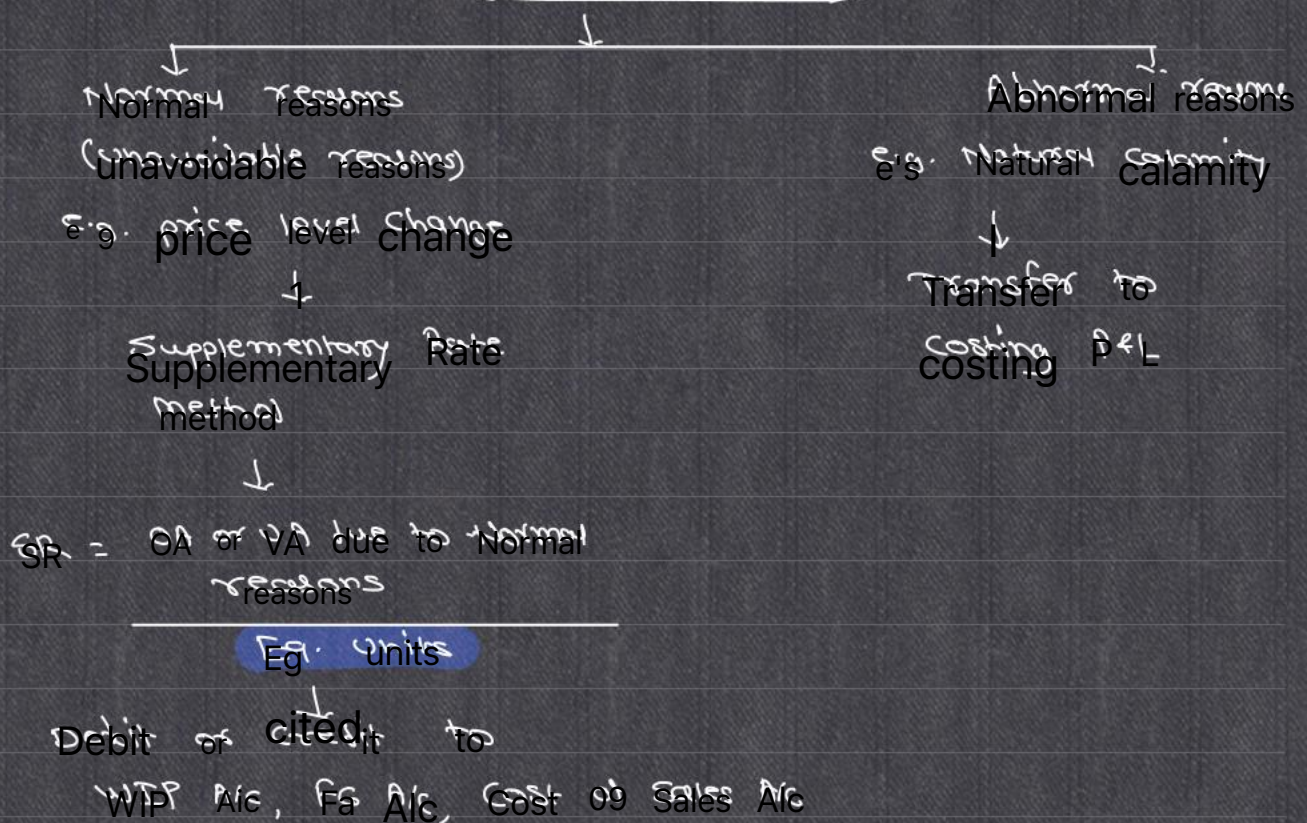 Normal reasons
(unavoidable reasons)
E.g. price level change
Supplementary Rate
method
SR = OA or UA due to Normal
reasons
Eq. units
Debit or credit to
WIP A/c, FG A/c, Cost of Sales A/c
Abnormal reasons
E.g. Natural calamity
Transfer to
Costing P&L